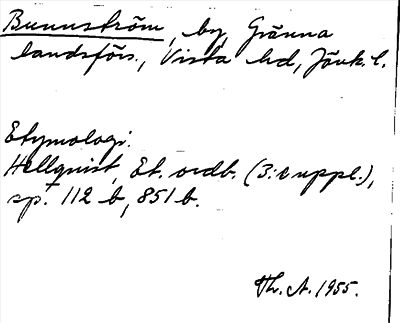 Bunnström, by, Gränna
landsförs., Vista hd, Jönk. l.
Etymologi:
Hellquist, Et. ordb. (3:e uppl.),
sp. 112 b, 851 b.
Th. A. 1955.